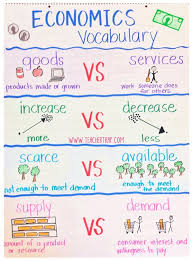 ECONOMICS
Vocabulary
goods VS services
products made or grown
work someone does
for others
increase VS decrease
more
less
WWW.TEACHERTRAP.COM
scarce VS available
not enough to meet demand
enough to meet
the demand
supply VS demand
amount of a product
or resource
consumer interest and
willingness to pay